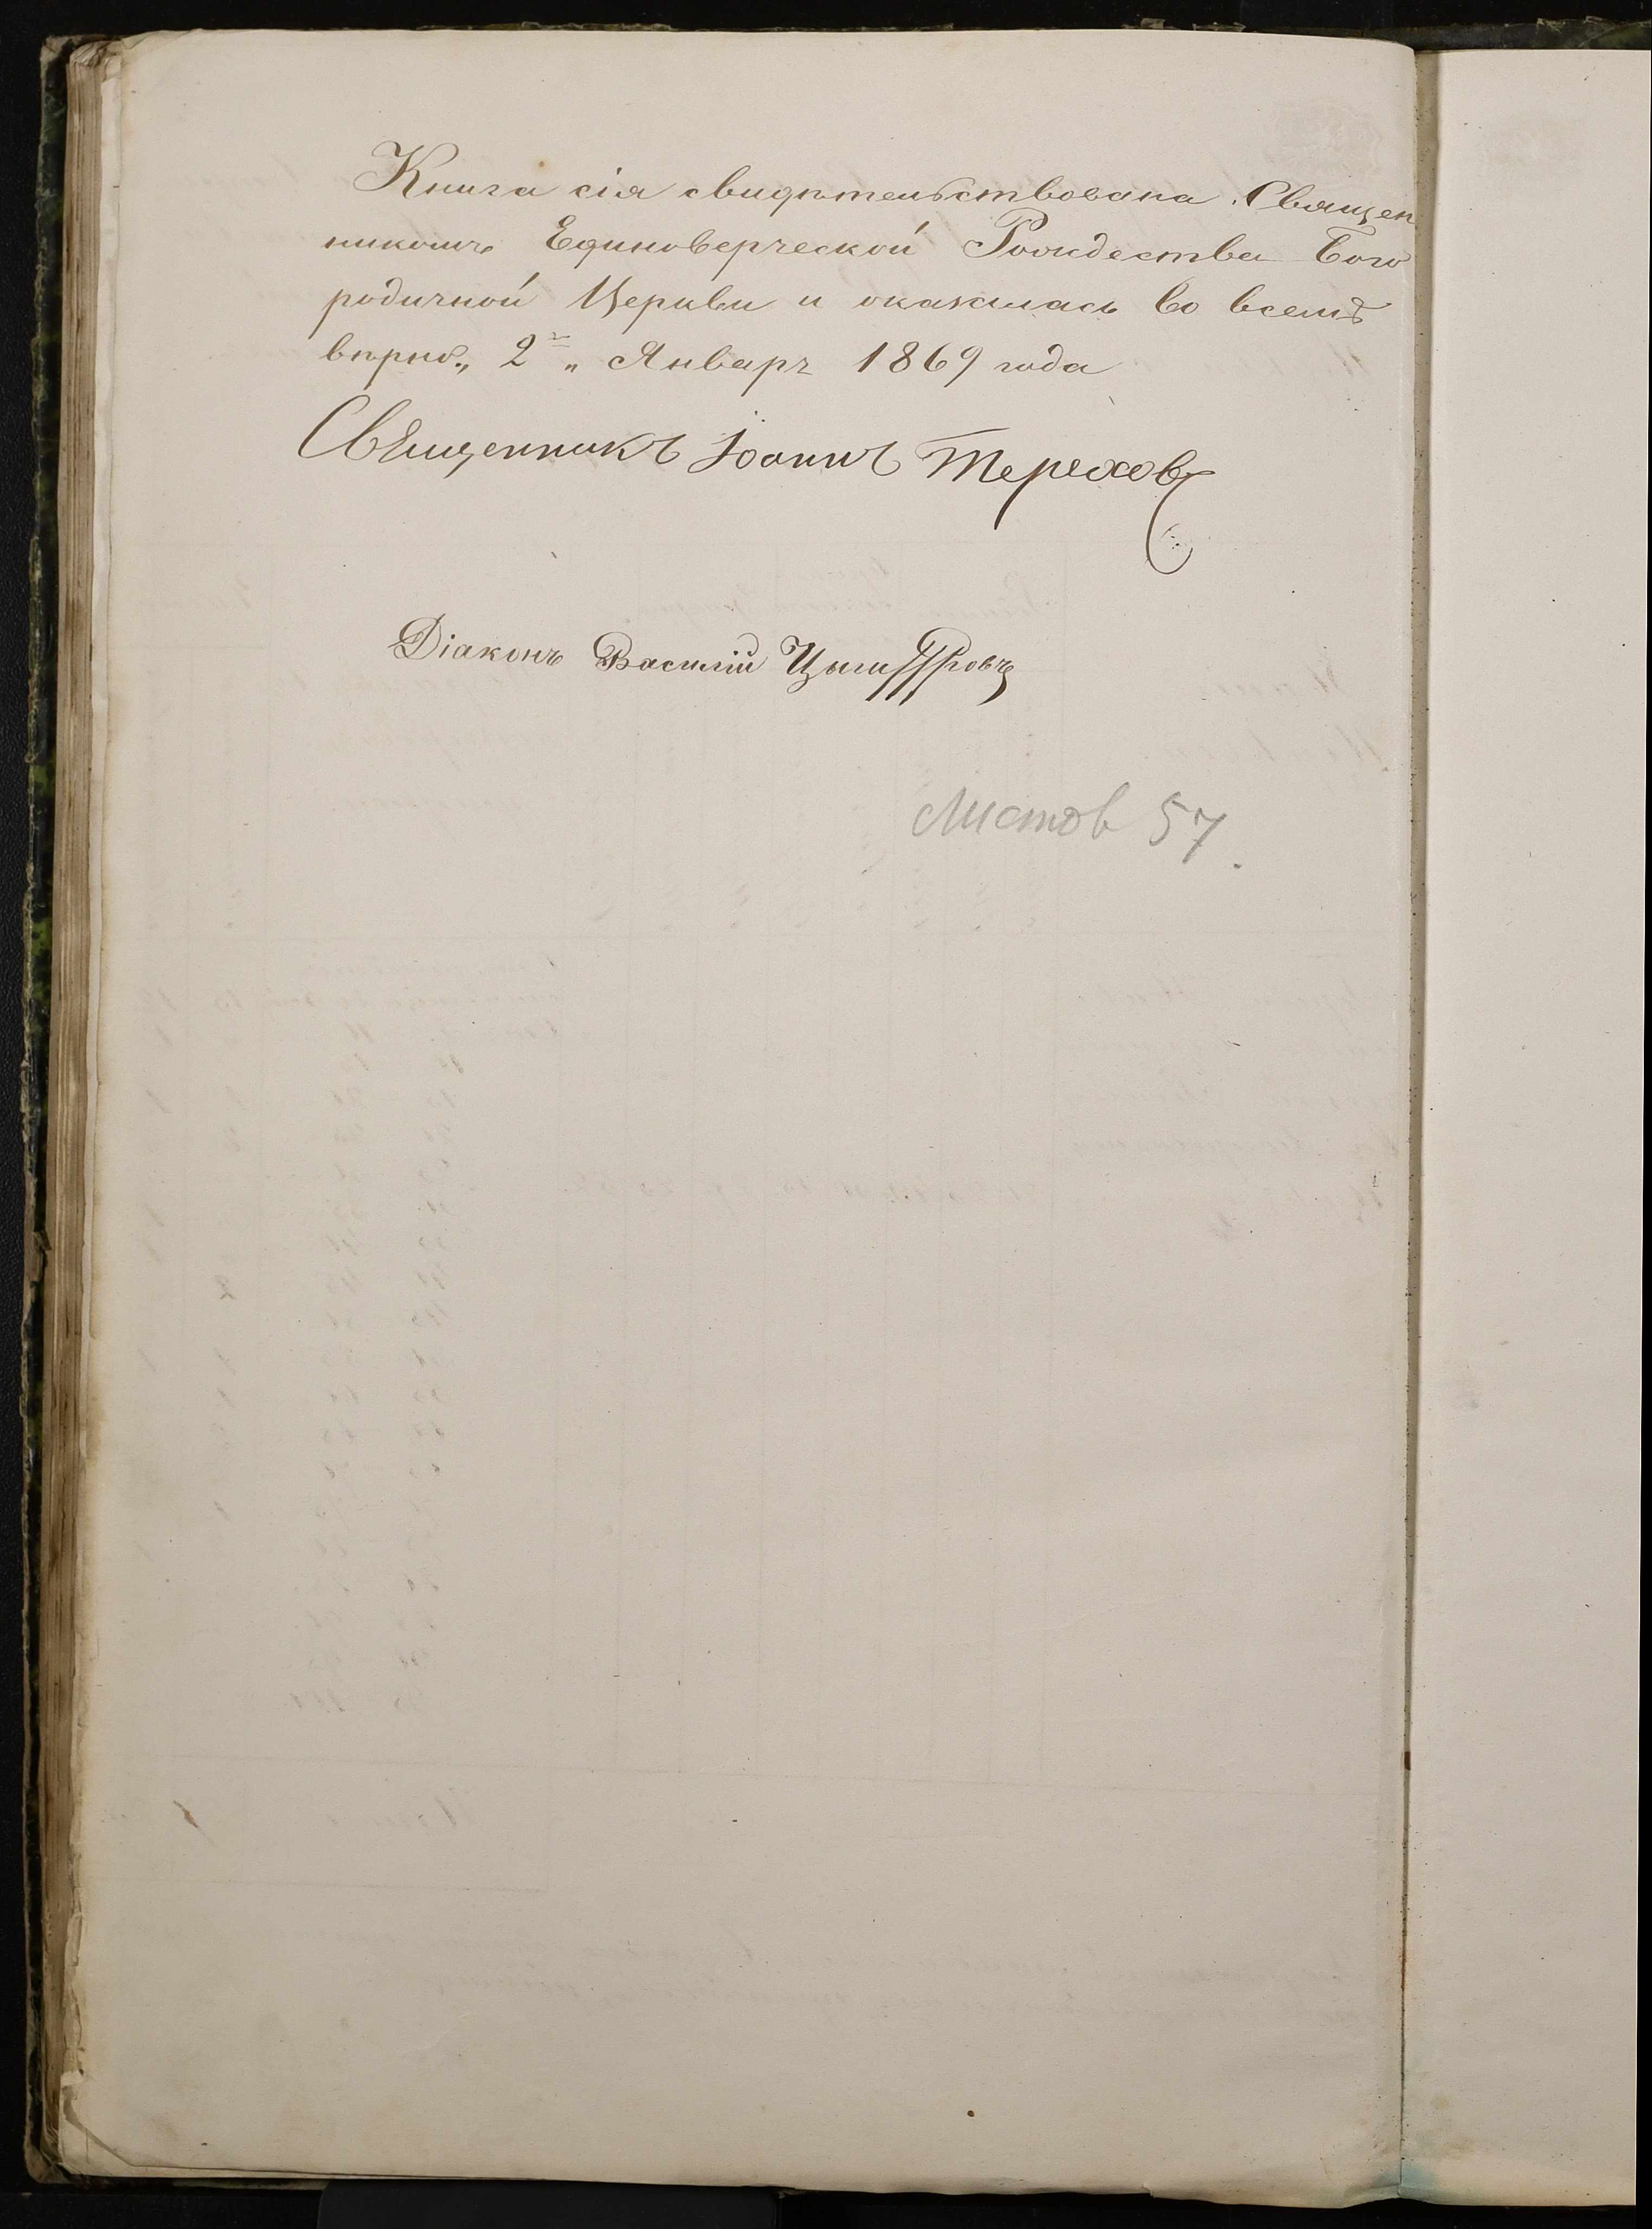 Книга сія свидѣтельствована Священ
никомъ Единоверческой Рождества Бого
родичной Церкви и оказалась во всемъ
вѣрно „ 2го „ Январѣ 1869 года
Священникъ Іоаннъ Тереховъ
Діаконъ Василій
Листов 57.